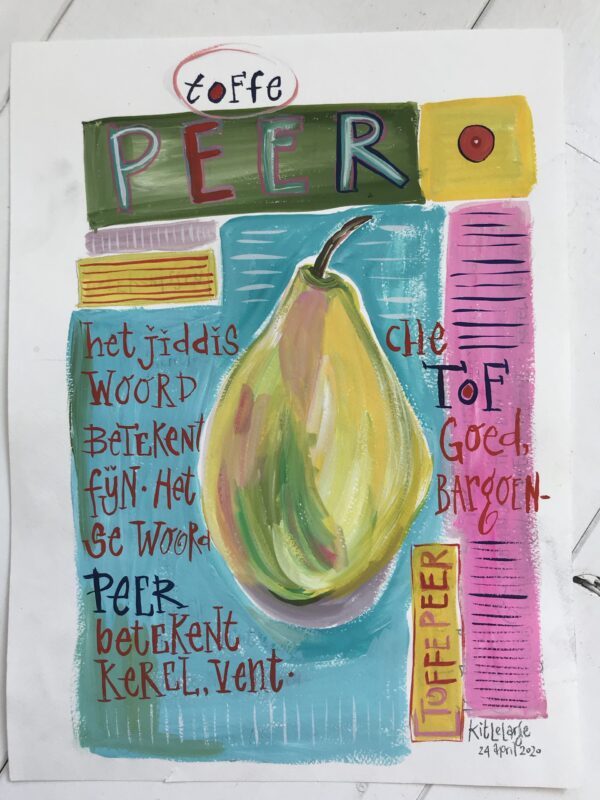 toffe
PEER
het jiddis che
WOORD TOF
BETEKENT Goed,
fijn. Het BARGOEN-
se WOORD
PEER
betekent
KEREL, Vent.
TOFFE PEER
Kit Lelarge
24 april 2020